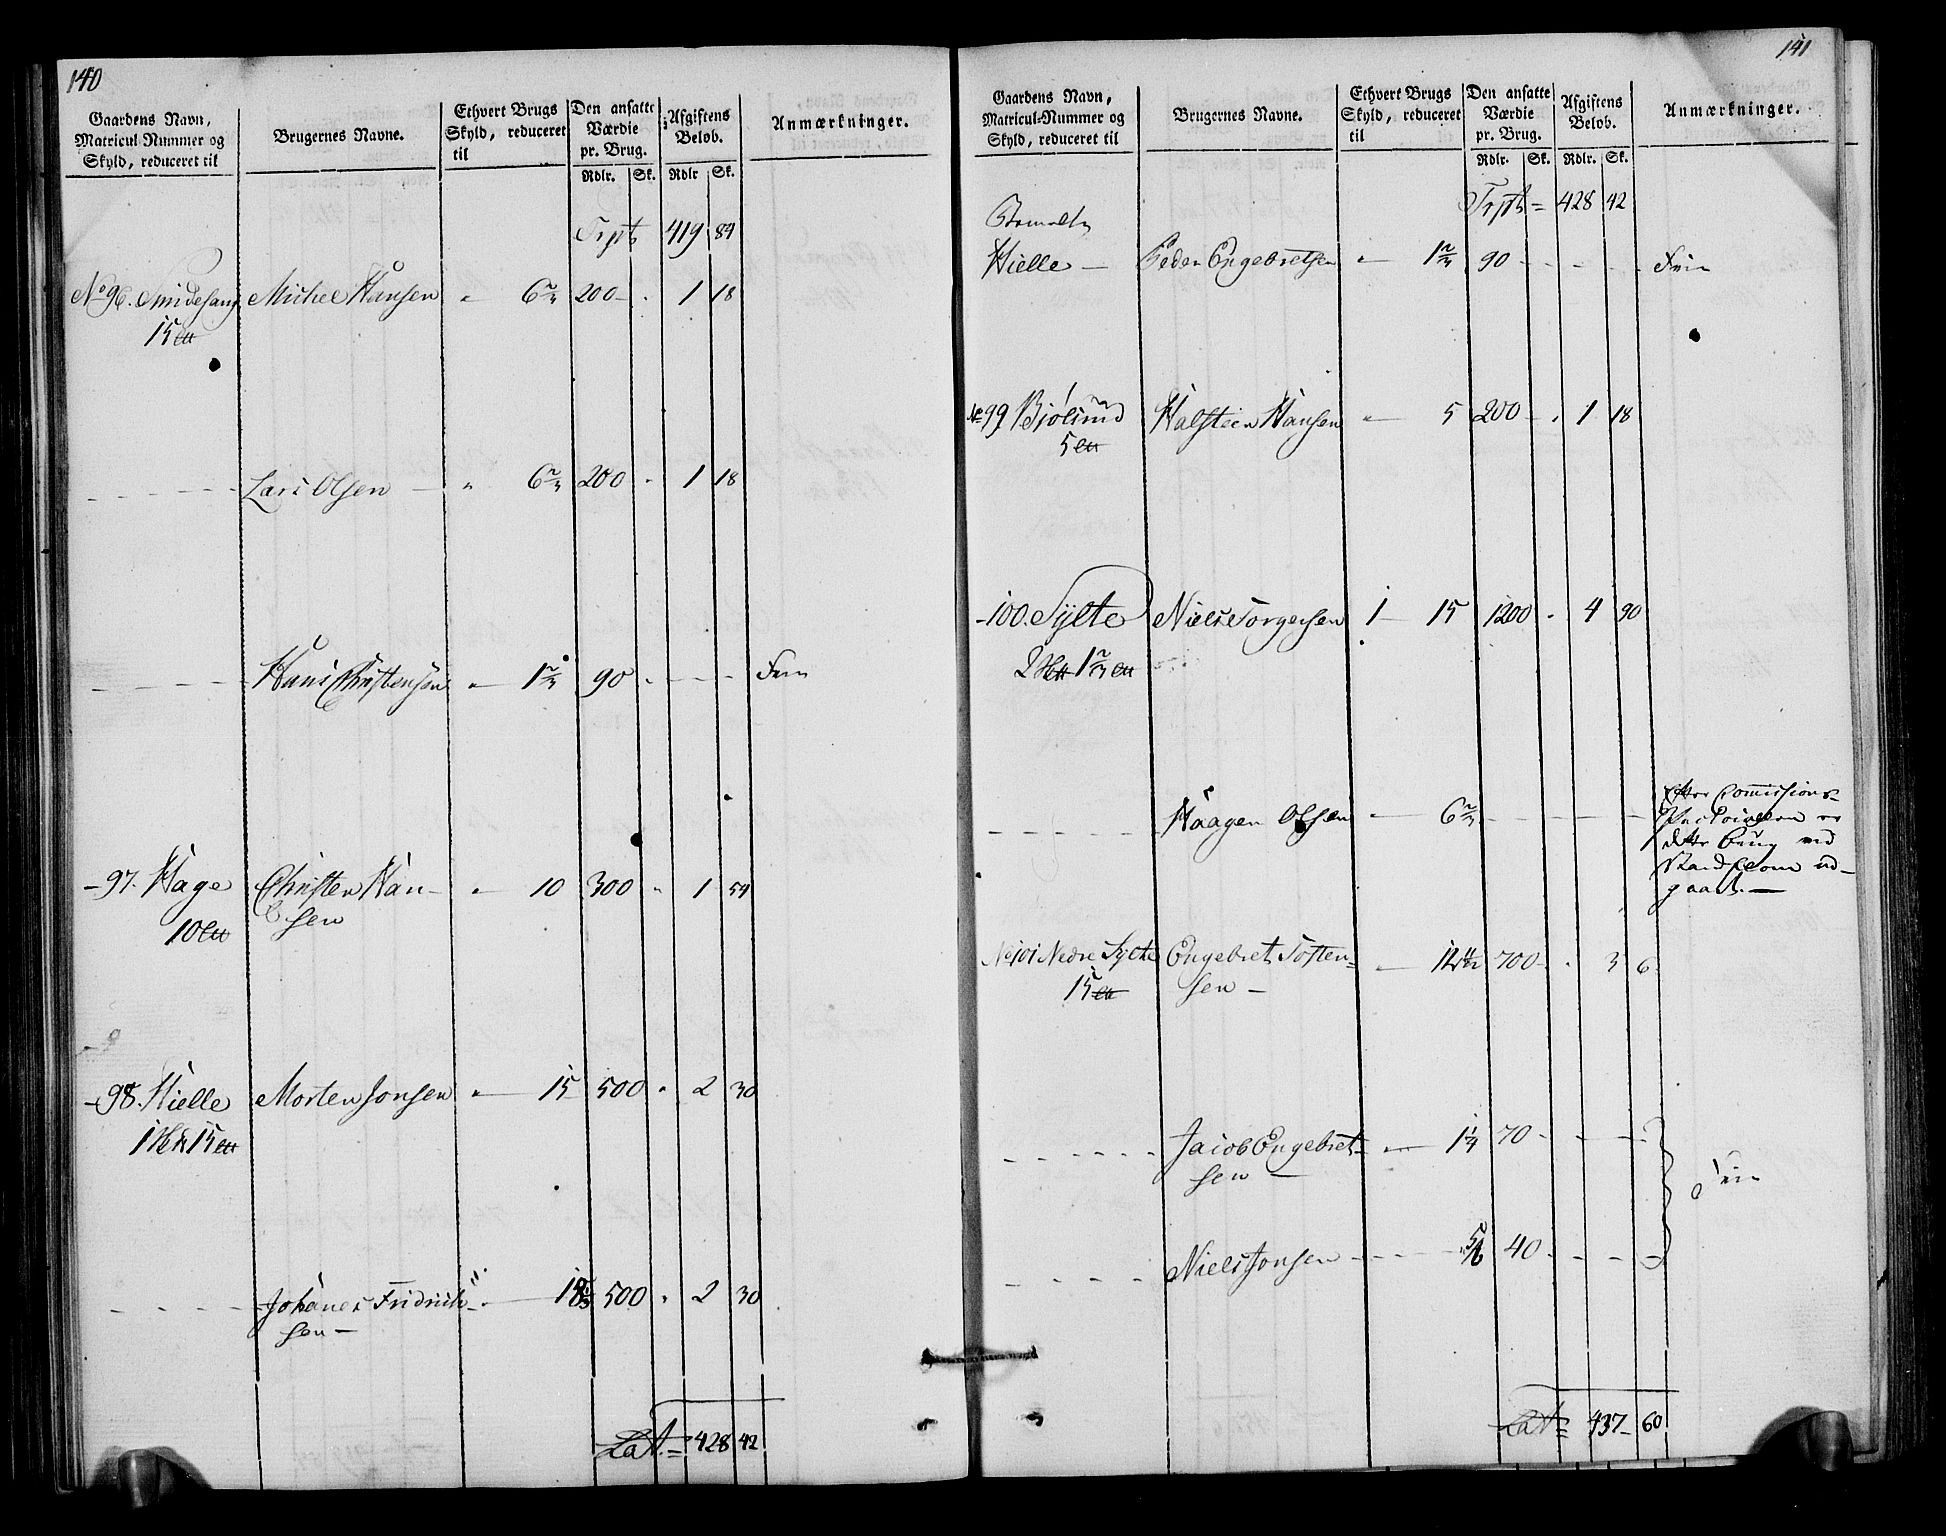 140
Gaardens Navn,
Matricul-Nummer og
Skyld, reduceret til
Brugernes Navne.
Ethvert Brugs
Skyld, reduceret
til
Den ansatte
Værdie
pr. Brug.
Afgiftens
Beløb.
Anmærkninger.
Rdlr. Sk. Rdlr Sk.
Trspt 419 84
No 96. Smidesang Michel Hansen " 6 2/3 200 - 1 18
15
Lars Olsen " 6 2/3 200 - 1 18
Hans Christensen - 1 2/3 90 - - - Frie
- 97. Hage Christen Han- " 10 300 " 1 54
10 sen
- 98. Hielle Morten Jonsen " 15 500 " 2 30
1 15
Johanes Fridrich-
sen - 500 " 2 30
Lat. = 428 42
141
Gaardens Navn,
Matricul-Nummer og
Skyld, reduceret til
Brugernes Navne.
Ethvert Brugs
Skyld, reduceret
til
Den ansatte
Værdie
pr. Brug.
Afgiftens
Beløb.
Anmærkninger.
Rdlr. Sk. Rdlr. Sk.
Trspt = 428 42
Hielle - Peder Engebretsen " 1 2/3 90 - - - Frie
No 99 Halsteen Hansen - 5 200 - 1 18
5
- 100. Sylte Niels Torgersen 1 - 15 1200 - 4 90
2 1 2/3
Haagen Olsen - 6 2/3 - - - Efter Commissions
er
dette Brug ved
ud-
gaaet. -
No 101 Nedre Sylte Engebret Tosten= - 700 - 3 6
15 sen -
Jacob Engebret- - 70 - - -
sen - Frie
Niels Jonsen - 5/6 40 - - -
Lat = 437 - 60